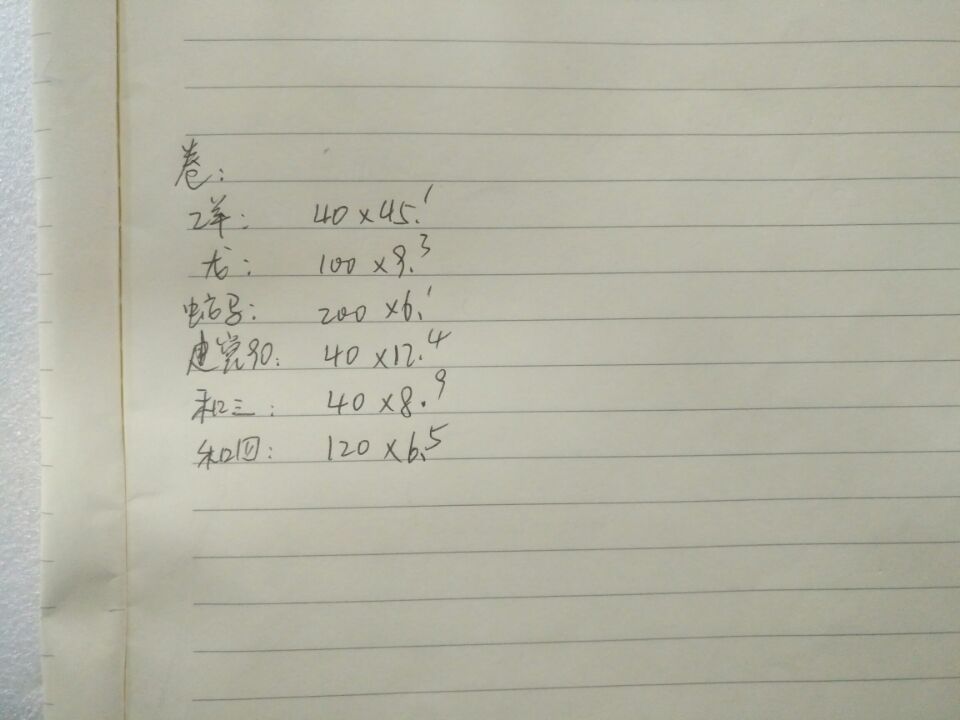 卷:
乙羊: 40×45.1
龙: 100×9.3
200×6.1
建党90: 40×12.4
和三: 40×8.9
和四: 120×6.5